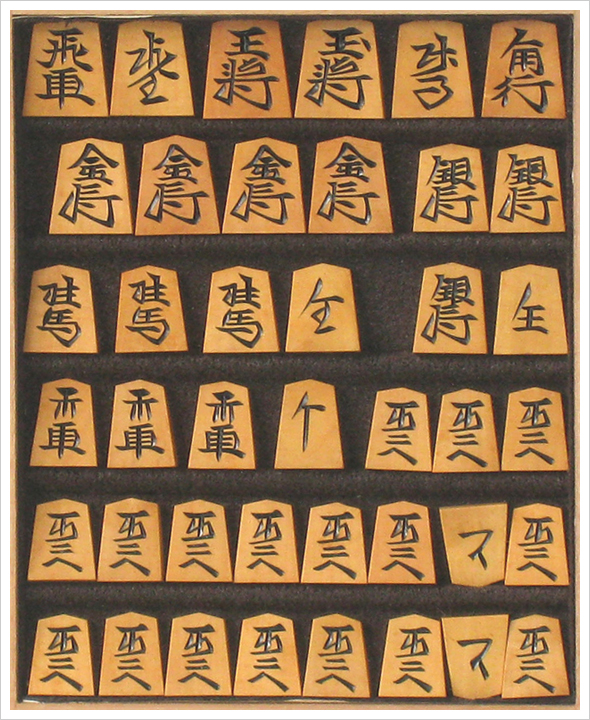 飛車 王将 玉将 角行
金将 金将 金将 金将 銀将 銀将
桂馬 桂馬 桂馬 銀将
香車 香車 香車 歩兵 歩兵 歩兵
歩兵 歩兵 歩兵 歩兵 歩兵 歩兵 と 歩兵
歩兵 歩兵 歩兵 歩兵 歩兵 歩兵 と 歩兵